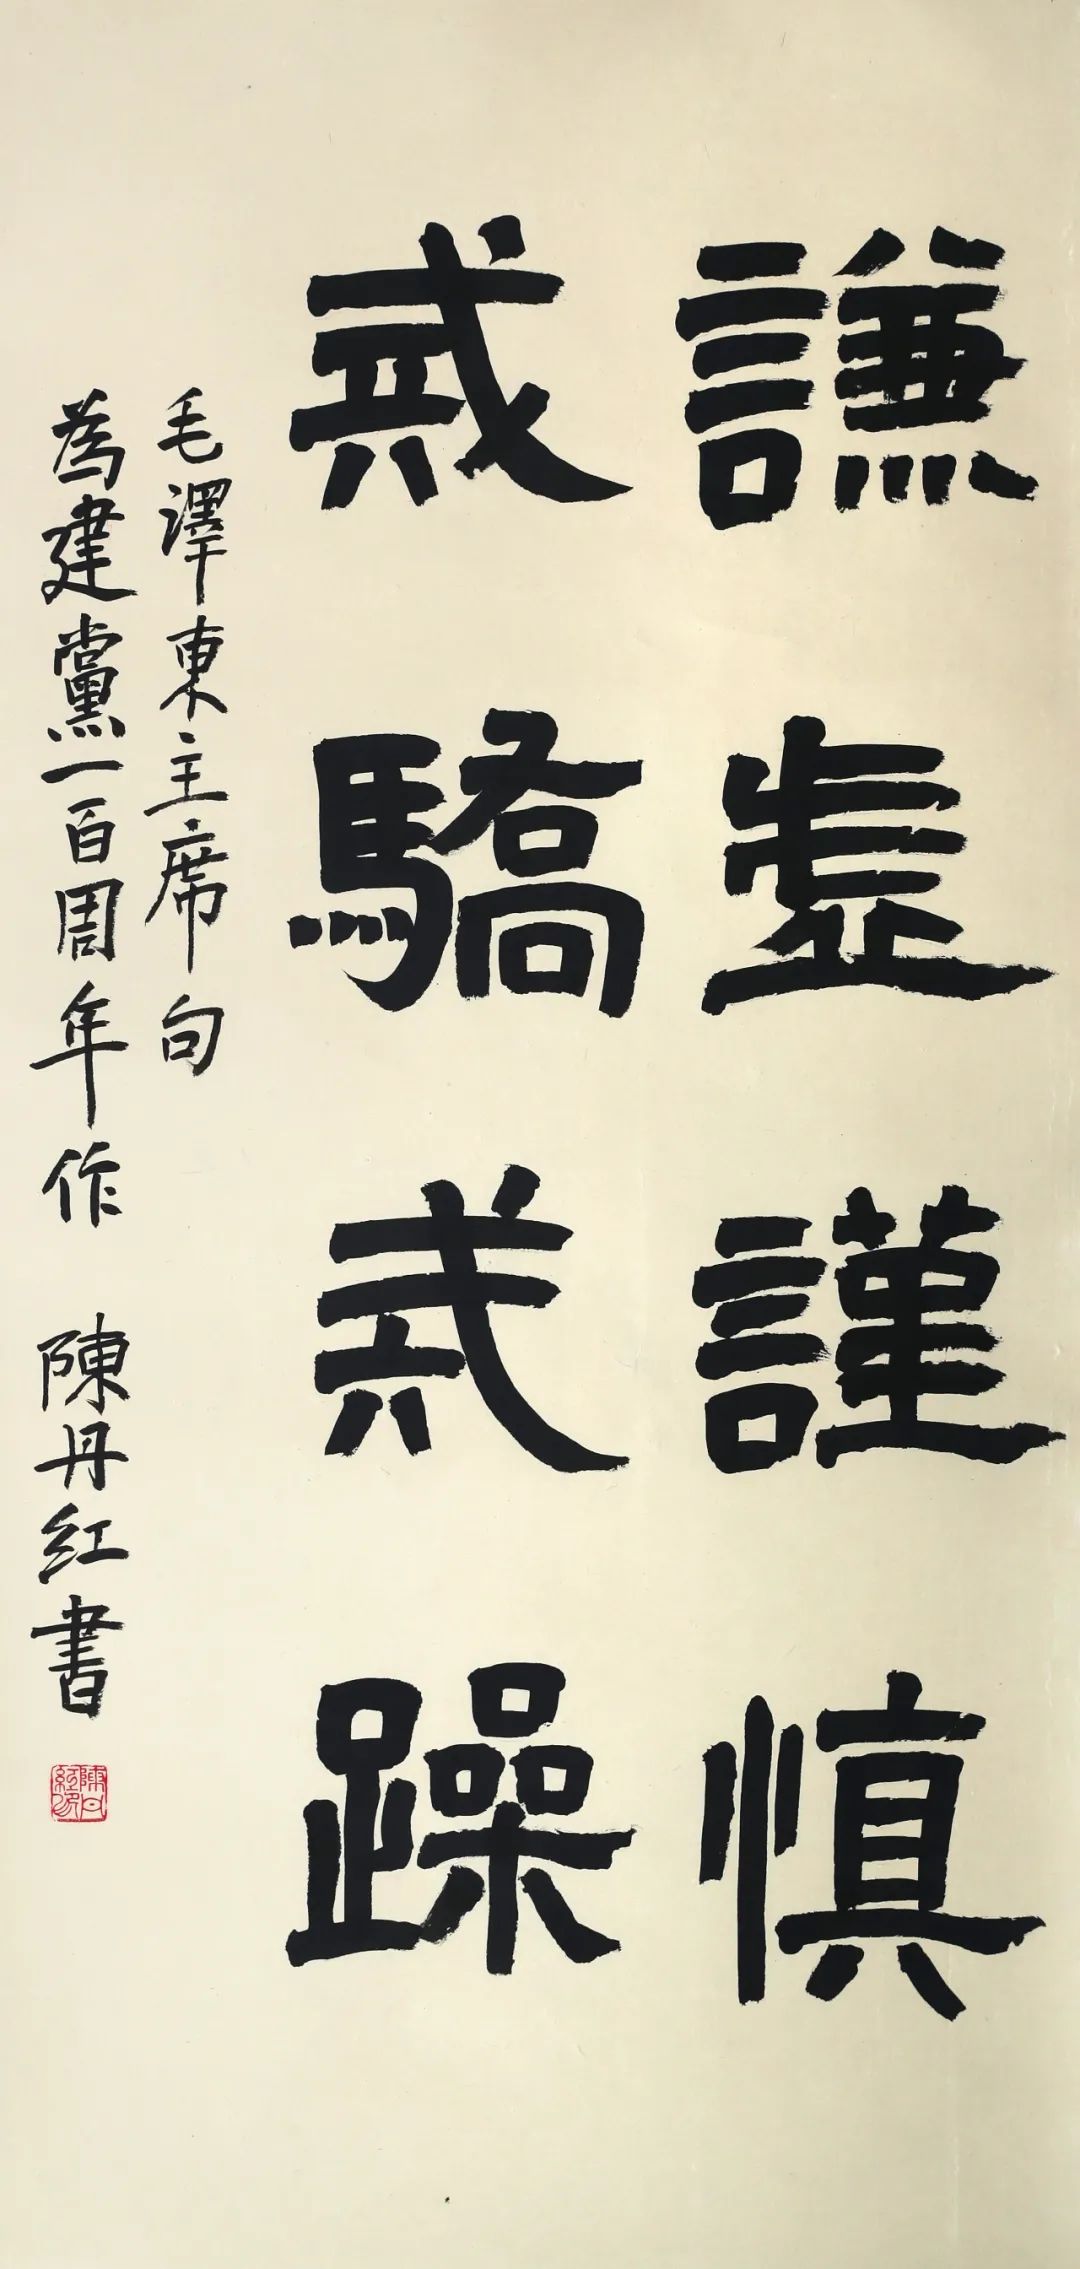 謙虛謹慎
戒驕戒躁
毛澤東主席句
為建黨一百周年作 陳丹红書